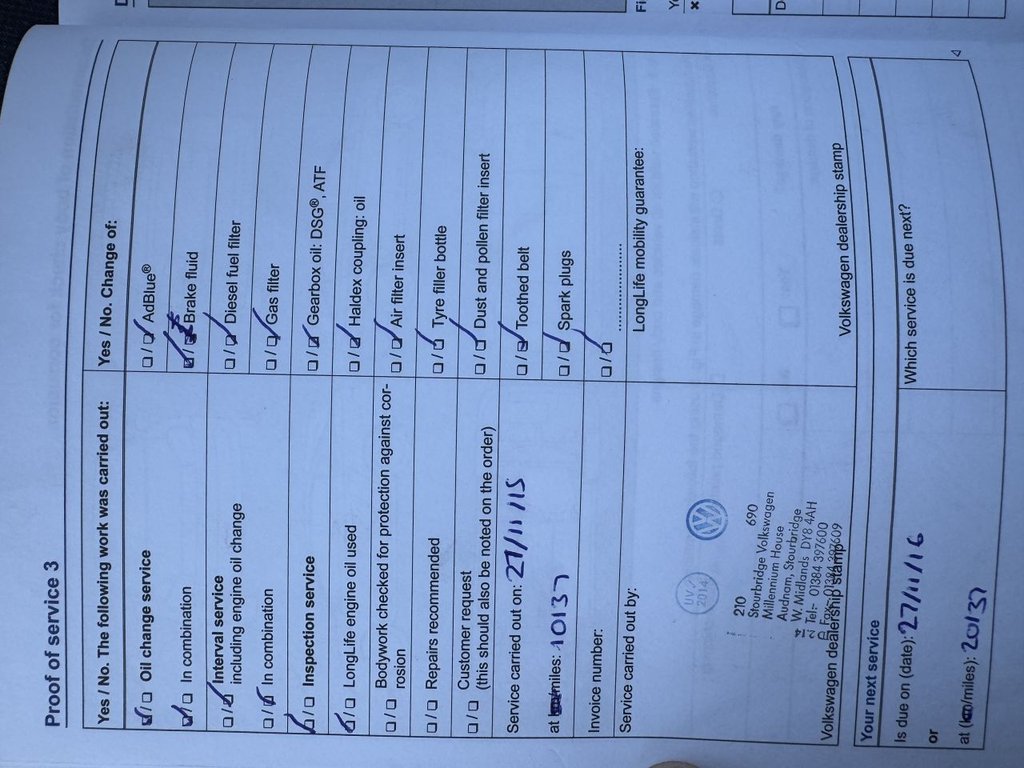 Proof of service 3
Yes / No. The following work was carried out:
Oil change service
In combination
Interval service
including engine oil change
In combination
Inspection service
LongLife engine oil used
Bodywork checked for protection against cor-
rosion
Repairs recommended
Customer request
(this should also be noted on the order)
Service carried out on: 27/11/15
at km/miles: 10137
Invoice number:
Service carried out by:
UV/
2014
210 690
Stourbridge Volkswagen
Millennium House
Audnam, Stourbridge
W. Midlands DY8 4AH
Tel:- 01384 397600
Fax:- 01384 397609
Volkswagen dealership stamp
Yes / No. Change of:
AdBlue®
Brake fluid
Diesel fuel filter
Gas filter
Gearbox oil: DSG®, ATF
Haldex coupling: oil
Air filter insert
Tyre filler bottle
Dust and pollen filter insert
Toothed belt
Spark plugs
LongLife mobility guarantee:
Volkswagen dealership stamp
Your next service
Is due on (date): 27/11/16
or
at (km/miles): 20137
Which service is due next?